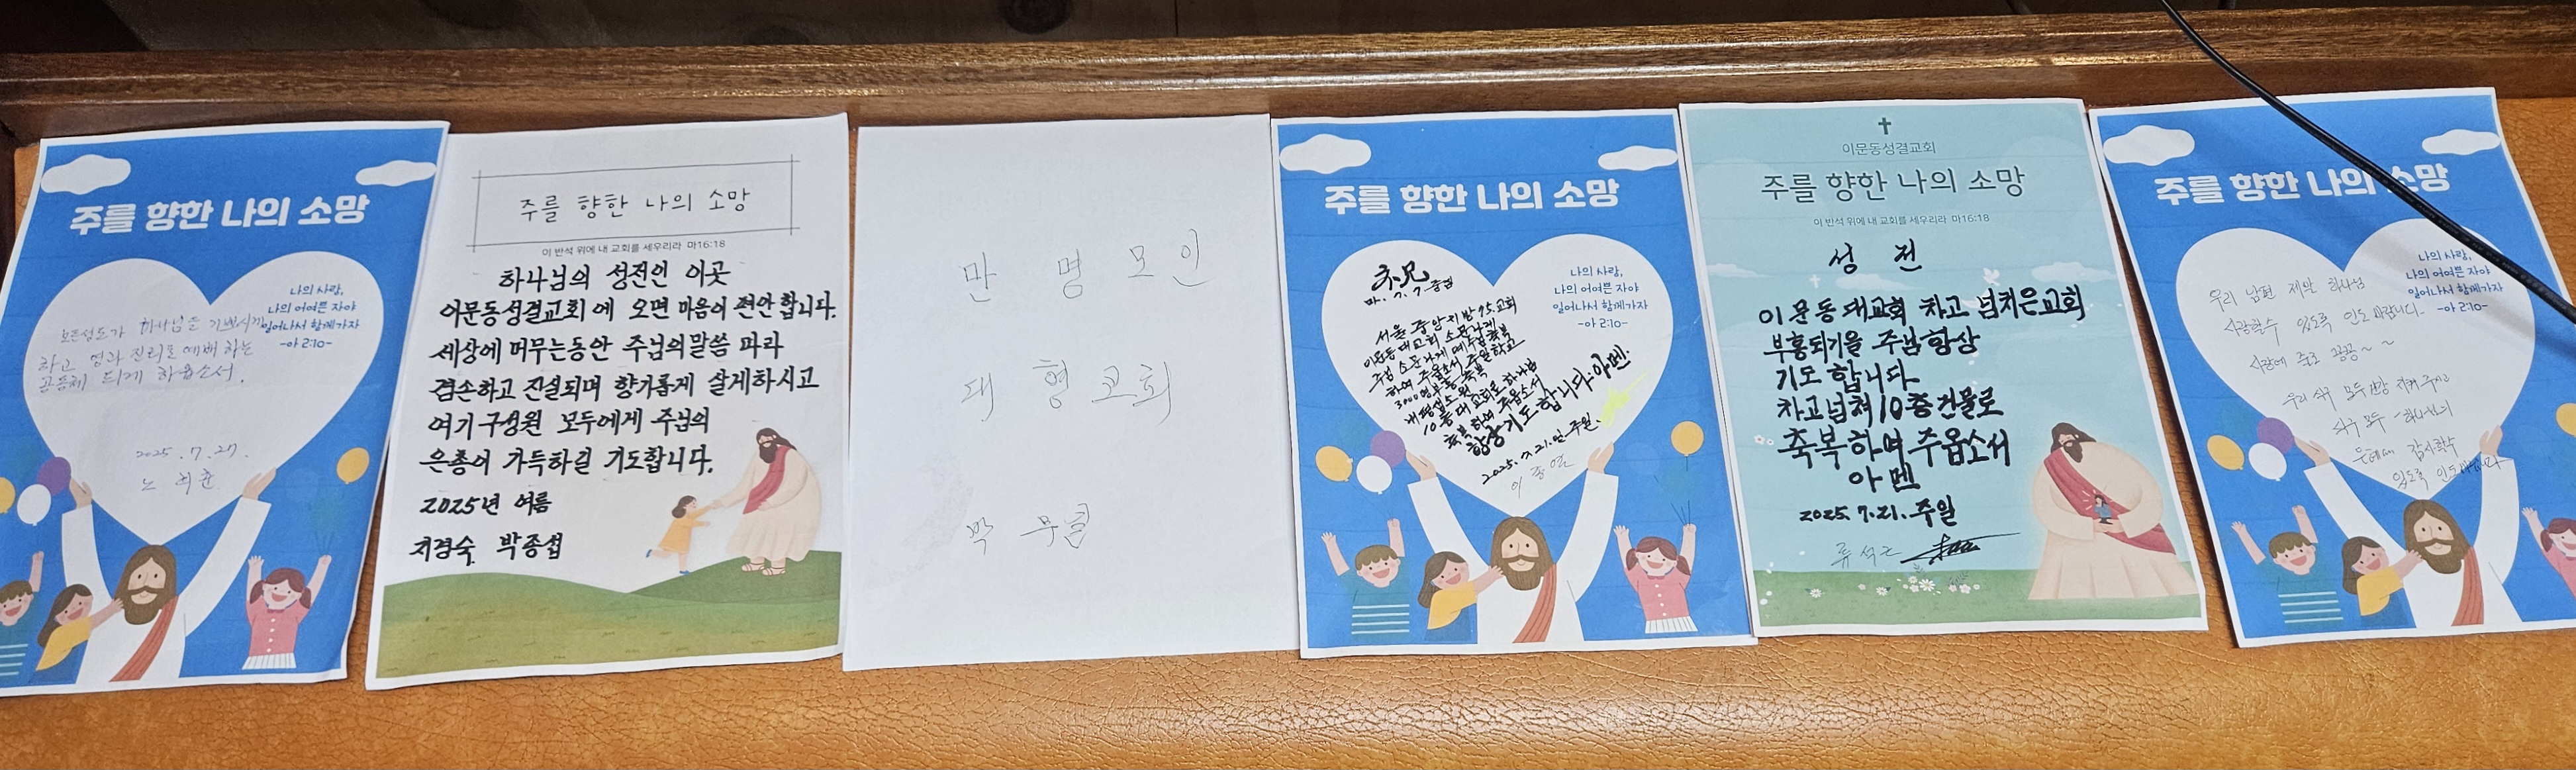 주를 향한 나의 소망
나의 사랑,
나의 어여쁜 자야
일어나서 함께가자
-아 2:10-
모든성도가 하나님을 기쁘시게
하고 영과 진리로 예배 하는
공동체 되게 하옵소서.
2025. 7. 27.
노 희 준
주를 향한 나의 소망
이 반석 위에 내 교회를 세우리라 마16:18
하나님의 성전인 이곳
이문동성결교회에 오면 마음이 편안합니다.
세상에 머무는동안 주님의말씀 따라
겸손하고 진실되며 향기롭게 살게하시고
여기 구성원 모두에게 주님의
은총이 가득하길 기도합니다.
2025년 여름
지경숙 박종섭
만 명 모인
대 형 교회
박 무널
주를 향한 나의 소망
나의 사랑,
나의 어여쁜 자야
일어나서 함께가자
-아 2:10-
마.7.7.
이문동대교회 소문나게
하여 주옵소서 주일학교
10층 대교회로 하나님
축복하여 주옵소서
항상기도합니다. 아멘.
2025.7.21.일.주일.
이문동성결교회
주를 향한 나의 소망
이 반석 위에 내 교회를 세우리라 마16:18
성 전
이문동대교회 차고 넘치은교회
부흥되기을 주님항상
기도 합니다
차고넘쳐10층건물로
축복하여주옵소서
아멘
2025.7.21.주일
류석근
주를 향한 나의 소망
나의 사랑,
나의 어여쁜 자야
일어나서 함께가자
-아 2:10-
우리 남편 제발 하나님
사랑할수 있도록 인도 바랍니다.
우리 식구 모두 건강 지켜 주시고
식구 모두 하나님의
은혜에 감사할수
있도록